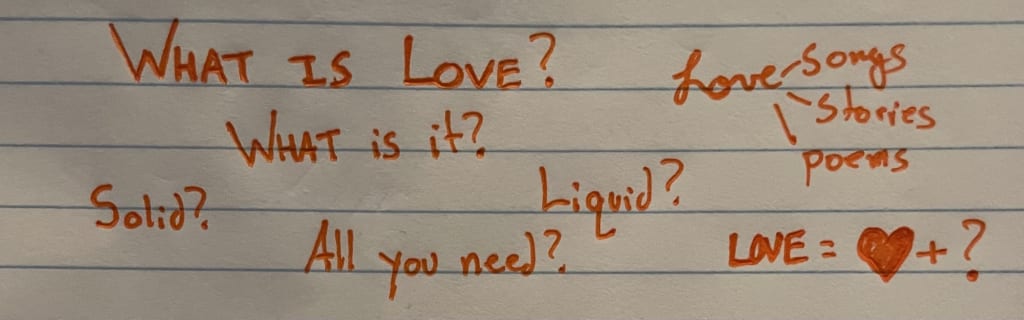 WHAT IS LOVE?
WHAT is it?
Solid?
Liquid?
All you need?
Love songs
stories
poems
LOVE = ❤ + ?